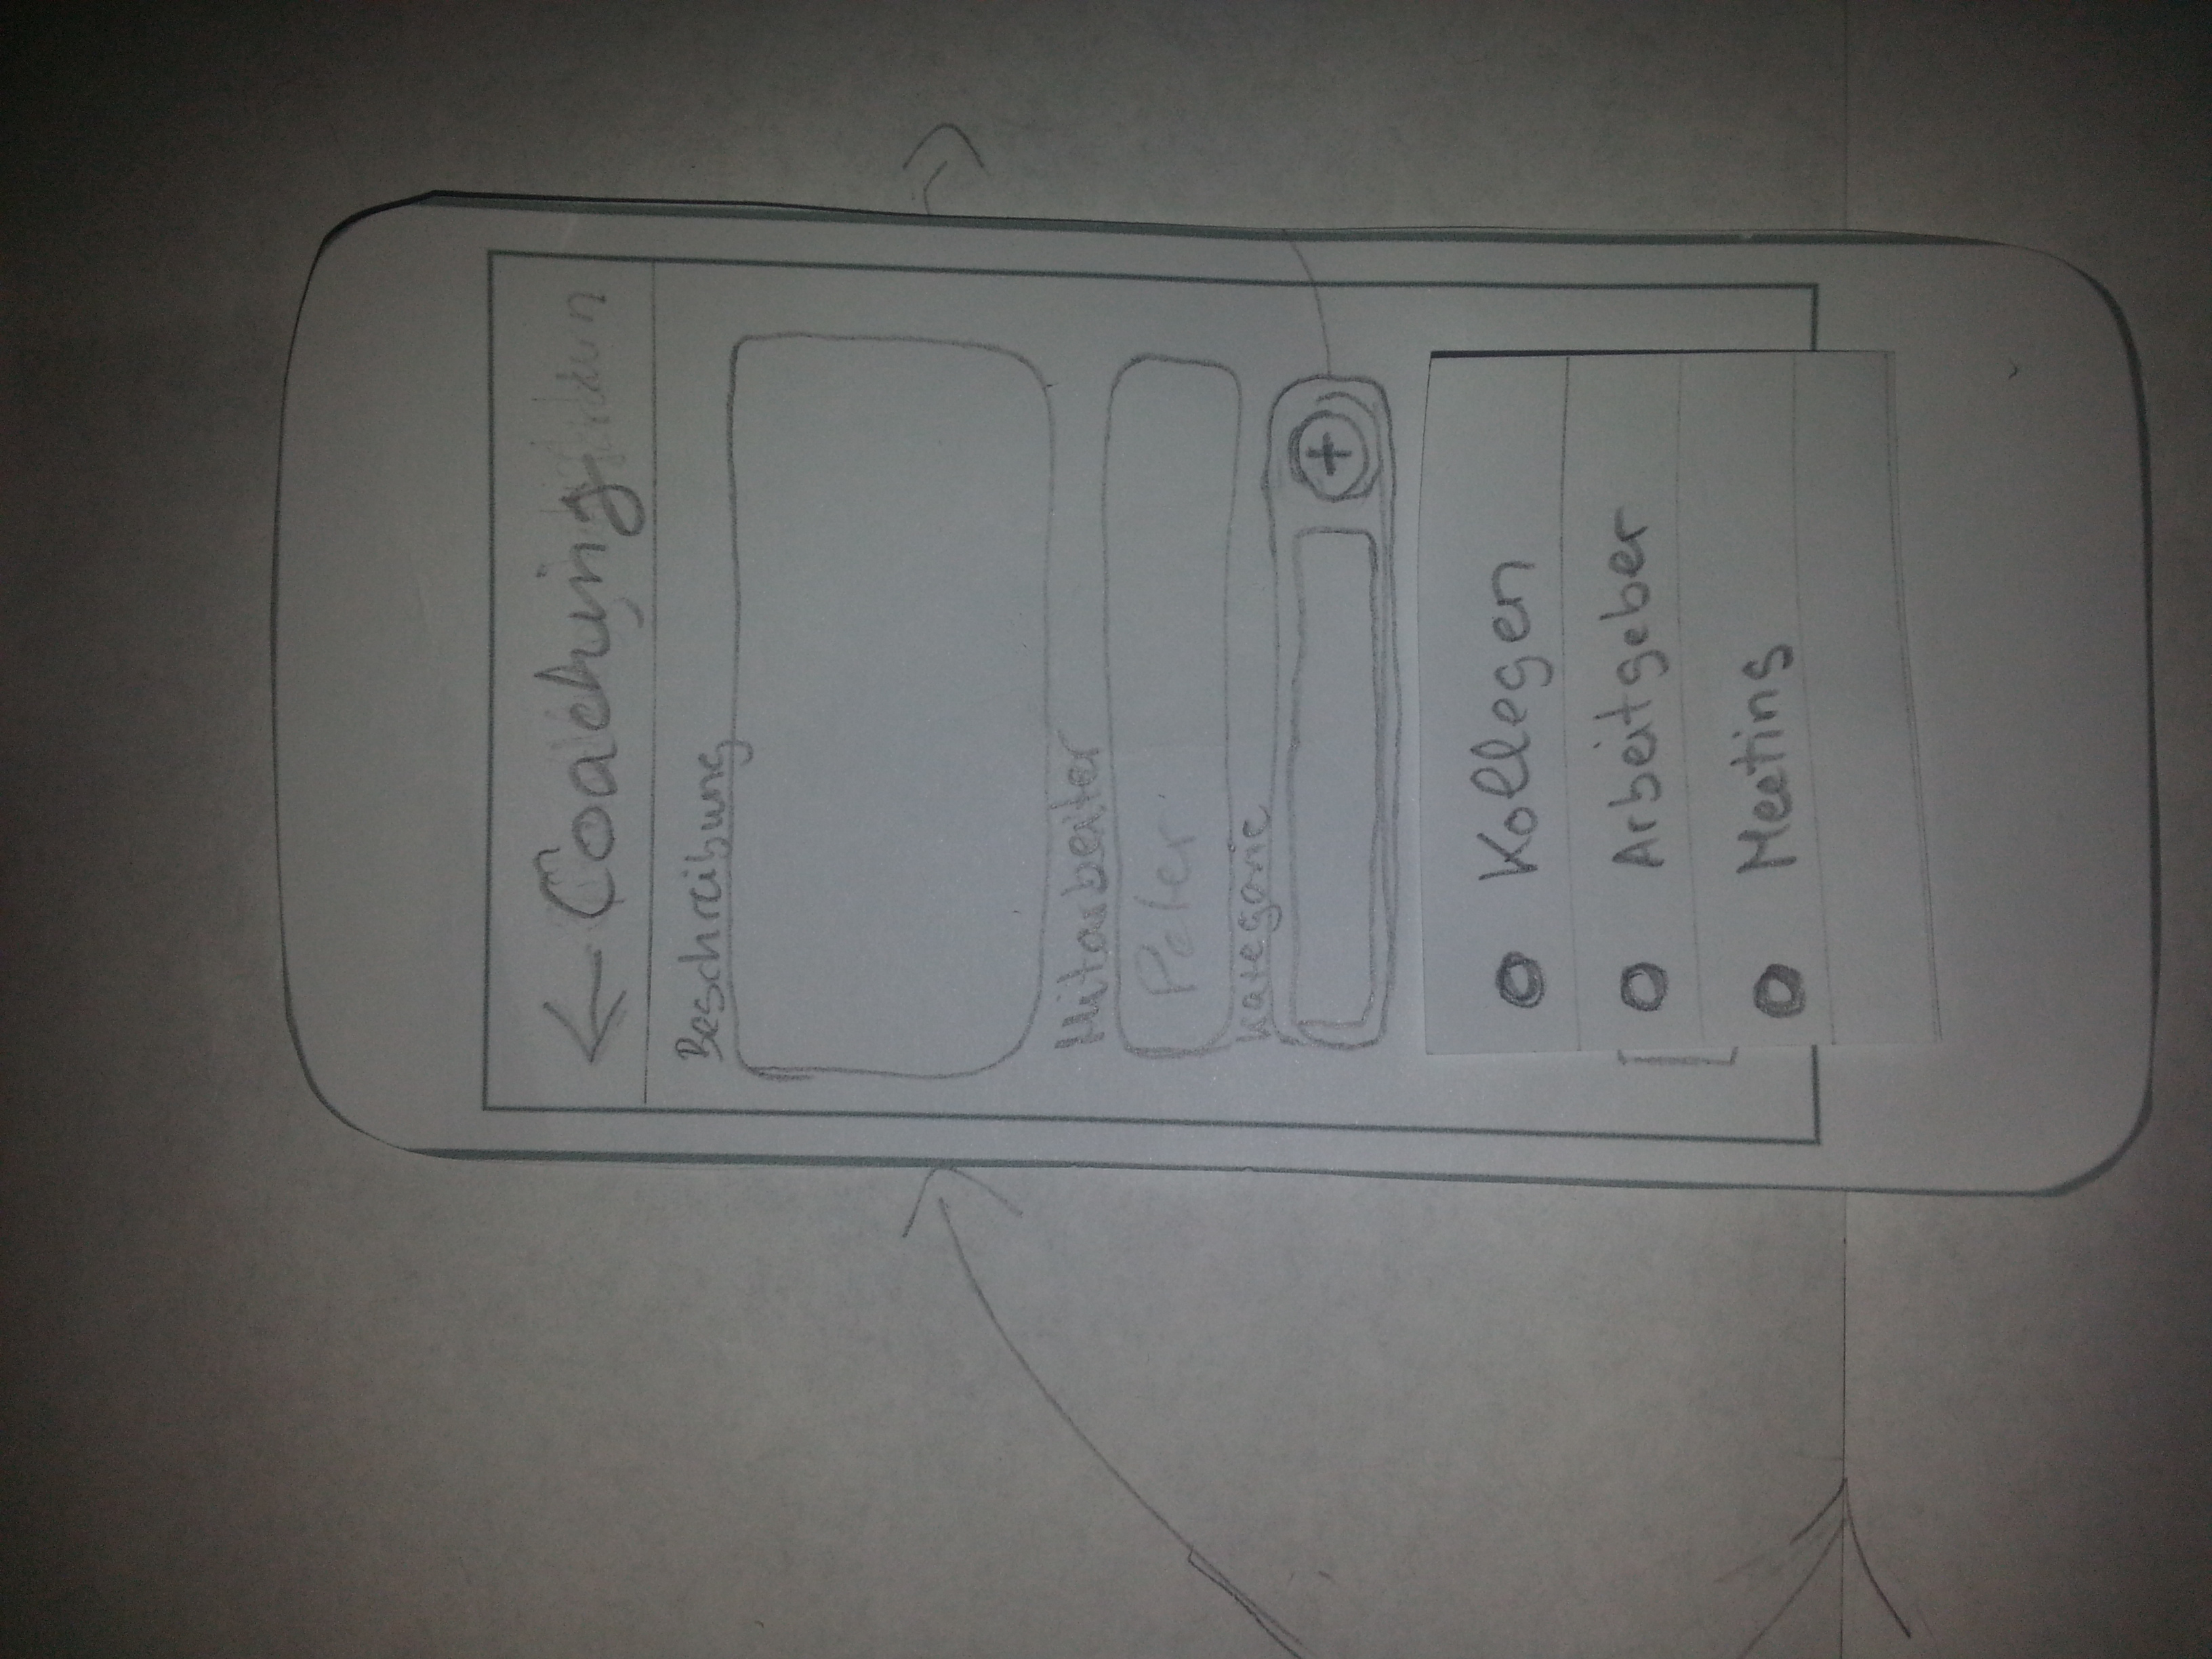 ← Coaching
Beschreibung
Mitarbeiter
Peter
Kategorie
+
Kollegen
Arbeitgeber
Meeting